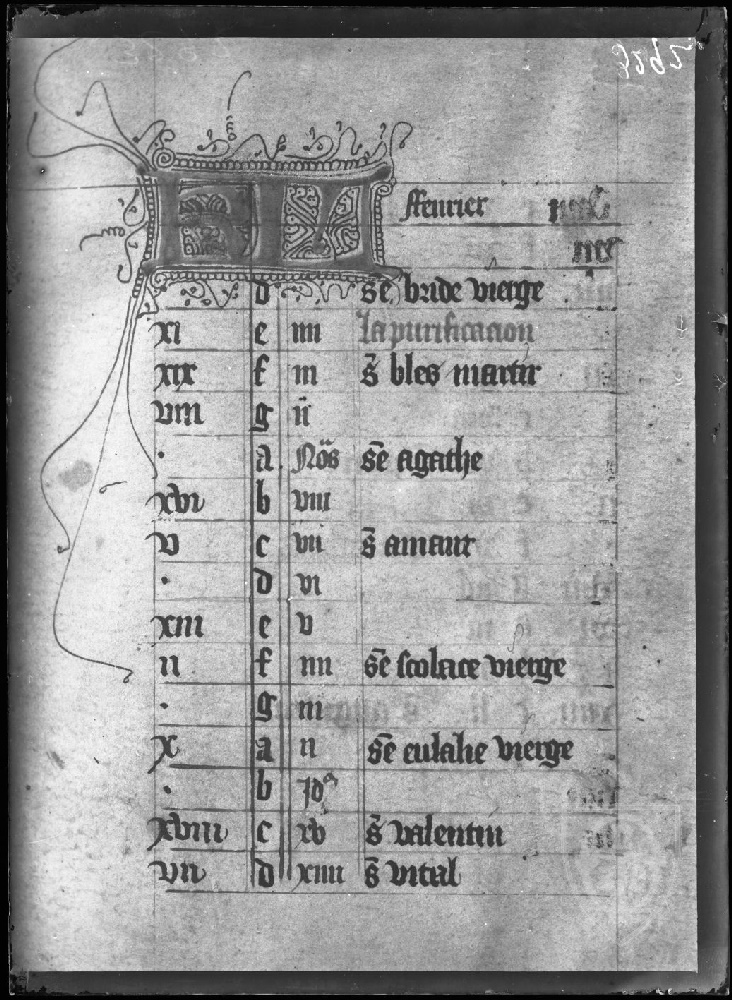 KL ffeurier
d sē bride vierge
xi e iiii la purificacion
xix f iii s̄ bles martir
viii g ii
a Nōs sē agathe
xvi b viii
v c vii s̄ amant
d vi
xiii e v
ii f iiii sē scolace vierge
g iii
x a ii sē eulalie vierge
b Id
xviii c xv s̄ valentin
vii d xiiii s̄ vital